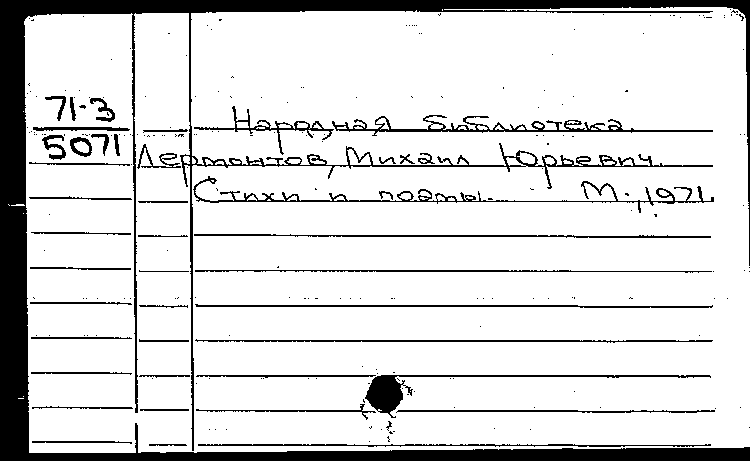 71-3
5071
Народная библиотека.
Лермонтов, Михаил Юрьевич.
Стихи и поэмы. М., 1971.